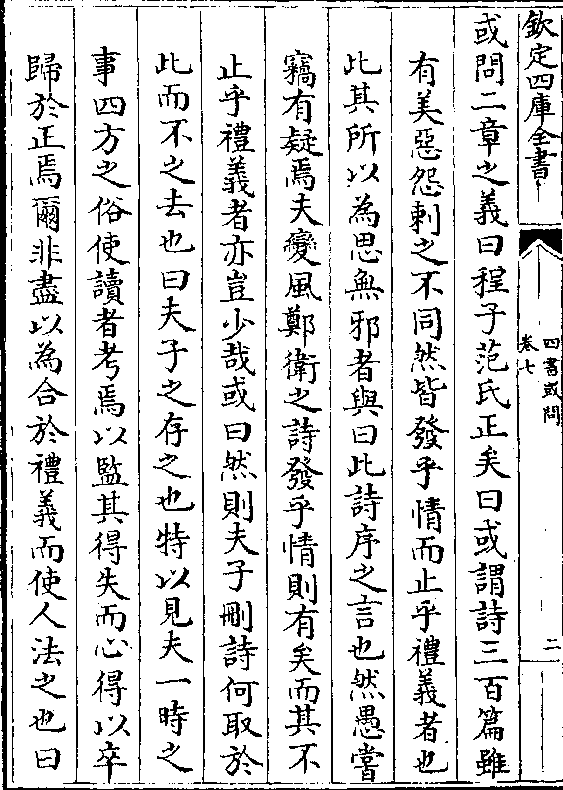 欽定四庫全書
四書或問
卷七
二
或問二章之義曰程子范氏正矣曰或謂詩三百篇雖
有美惡怨刺之不同然皆發乎情而止乎禮義者也
此其所以為思無邪者與曰此詩序之言也然愚嘗
竊有疑焉夫變風鄭衛之詩發乎情則有矣而其不
止乎禮義者亦豈少哉或曰然則夫子刪詩何取於
此而不之去也曰夫子之存之也特以見夫一時之
事四方之俗使讀者考焉以監其得失而心得以卒
歸於正焉爾非盡以為合於禮義而使人法之也曰